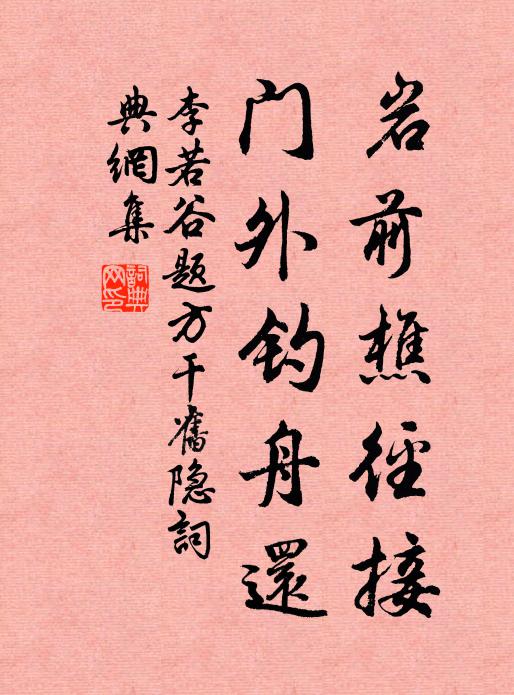 岩前樵径接
门外钓舟還
李若谷题方干舊隐詞
典網集
詞典網印